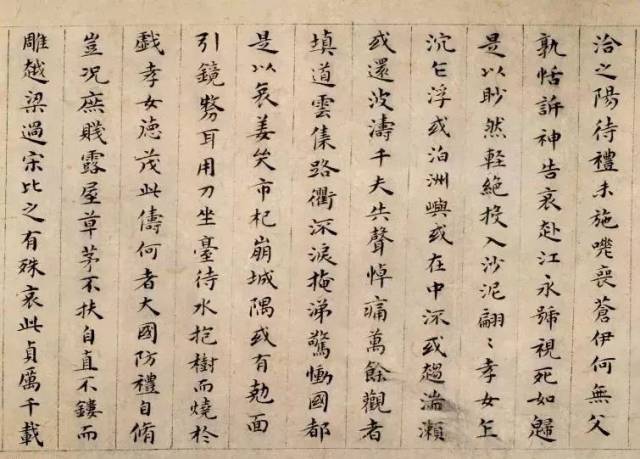 洽之陽待禮未施嗟喪蒼伊何無父
孰怙訴神告哀赴江永號視死如歸
是以眇然軽絶投入沙泥翩〻孝女乍
沉乍浮或泊洲嶼或在中流或趨湍瀬
或還波濤千夫失聲悼痛萬餘觀者
填道雲集路衢流淚掩涕驚慟國都
是以哀姜哭市杞崩城隅或有勊面
引鏡剺耳用刀坐臺待水抱樹而燒於
戯孝女德茂此儔何者大國防禮自脩
豈況庶賤露屋草茅不扶自直不鏤而
雕越梁過宋比之有殊哀此貞厲千載